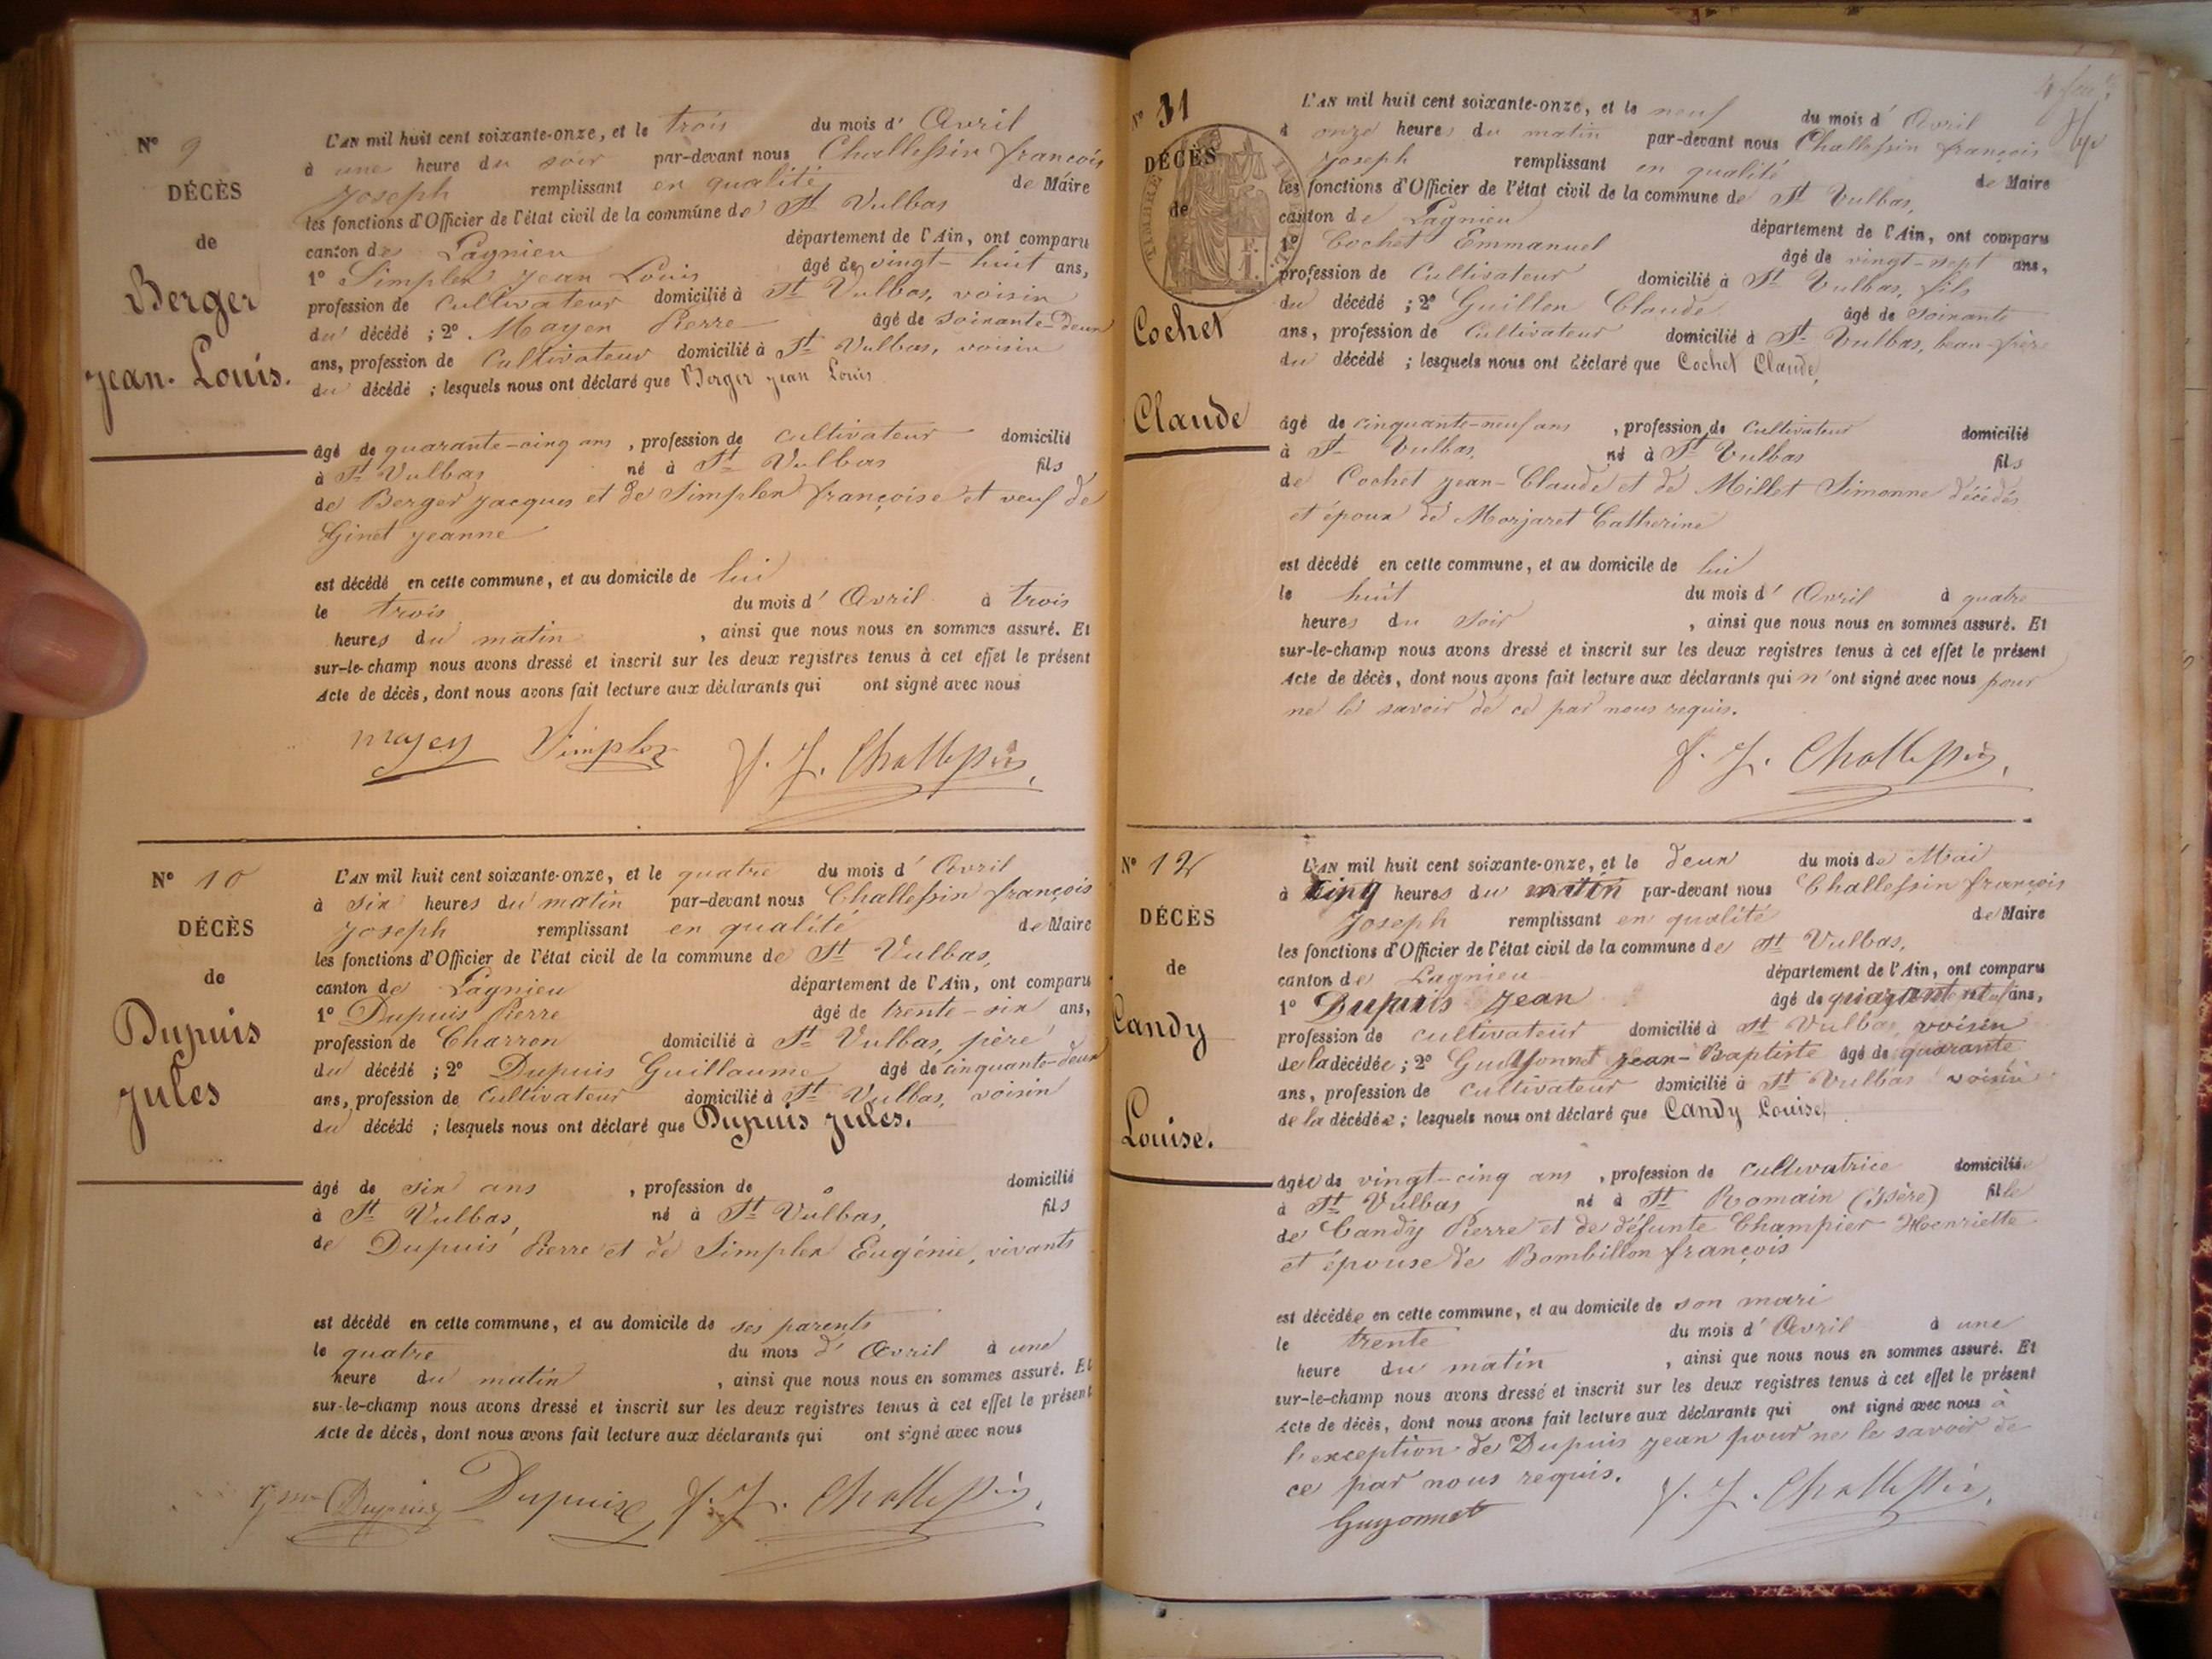 N° 9
DÉCÈS
de
Berger
Jean-Louis.
L'AN mil huit cent soixante-onze, et le trois du mois d'Avril
à une heure du soir par-devant nous Challessin françois
Joseph remplissant en qualité de Maire
les fonctions d'Officier de l'état civil de la commune de St Vulbas
canton de Lagnieu département de l'Ain, ont comparu
1° Simplex Jean Louis âgé de vingt-huit ans,
profession de Cultivateur domicilié à St Vulbas, voisin
du décédé ; 2° Mayen Pierre âgé de soixante-deux
ans, profession de Cultivateur domicilié à St Vulbas, voisin
du décédé ; lesquels nous ont déclaré que Berger Jean Louis
âgé de quarante-cinq ans, profession de cultivateur domicilié
à St Vulbas né à St Vulbas fils
de Berger Jacques et de Simplex françoise et veuf de
Ginet Jeanne
est décédé en cette commune, et au domicile de lui
le trois du mois d'Avril à trois
heures du matin, ainsi que nous nous en sommes assuré. Et
sur-le-champ nous avons dressé et inscrit sur les deux registres tenus à cet effet le présent
Acte de décès, dont nous avons fait lecture aux déclarants qui ont signé avec nous
mayen Simplex f. J. Challessin
N° 10
DÉCÈS
de
Dupuis
Jules
L'AN mil huit cent soixante-onze, et le quatre du mois d'Avril
à six heures du matin par-devant nous Challessin françois
Joseph remplissant en qualité de Maire
les fonctions d'Officier de l'état civil de la commune de St Vulbas,
canton de Lagnieu département de l'Ain, ont comparu
1° Dupuis Pierre âgé de trente-six ans,
profession de Charron domicilié à St Vulbas, père
du décédé ; 2° Dupuis Guillaume âgé de cinquante-deux
ans, profession de Cultivateur domicilié à St Vulbas, voisin
du décédé ; lesquels nous ont déclaré que Dupuis Jules.
âgé de six ans, profession de o domicilié
à St Vulbas, né à St Vulbas, fils
de Dupuis Pierre et de Simplex Eugénie, vivants
est décédé en cette commune, et au domicile de ses parents
le quatre du mois d'Avril à une
heure du matin, ainsi que nous nous en sommes assuré. Et
sur-le-champ nous avons dressé et inscrit sur les deux registres tenus à cet effet le présent
Acte de décès, dont nous avons fait lecture aux déclarants qui ont signé avec nous
Gme Dupuis Dupuis f. J. Challessin
N° 11
DÉCÈS
de
Cochet
Claude
L'AN mil huit cent soixante-onze, et le neuf du mois d'Avril
à onze heures du matin par-devant nous Challessin françois
Joseph remplissant en qualité de Maire
les fonctions d'Officier de l'état civil de la commune de St Vulbas,
canton de Lagnieu département de l'Ain, ont comparu
1° Cochet Emmanuel âgé de vingt-sept ans,
profession de Cultivateur domicilié à St Vulbas, fils
du décédé ; 2° Guillon Claude âgé de soixante
ans, profession de Cultivateur domicilié à St Vulbas, beau-frère
du décédé ; lesquels nous ont déclaré que Cochet Claude,
âgé de cinquante-neuf ans, profession de Cultivateur domicilié
à St Vulbas, né à St Vulbas fils
de Cochet Jean-Claude et de Millet Simonne décédés
et époux de Morjaret Catherine
est décédé en cette commune, et au domicile de lui
le huit du mois d'Avril à quatre
heures du soir, ainsi que nous nous en sommes assuré. Et
sur-le-champ nous avons dressé et inscrit sur les deux registres tenus à cet effet le présent
Acte de décès, dont nous avons fait lecture aux déclarants qui n'ont signé avec nous pour
ne le savoir de ce par nous requis.
f. J. Challessin
N° 12
DÉCÈS
de
Candy
Louise.
L'AN mil huit cent soixante-onze, et le deux du mois de Mai
à cinq heures du matin par-devant nous Challessin françois
Joseph remplissant en qualité de Maire
les fonctions d'Officier de l'état civil de la commune de St Vulbas,
canton de Lagnieu département de l'Ain, ont comparu
1° Dupuis Jean âgé de ans,
profession de cultivateur domicilié à St Vulbas, voisin
de la décédée ; 2° Guillonnet Jean-Baptiste âgé de quarante
ans, profession de cultivateur domicilié à St Vulbas voisin
de la décédée ; lesquels nous ont déclaré que Candy Louise,
âgée de vingt-cinq ans, profession de cultivatrice domicilié
à St Vulbas né à St Romain (Isère) fille
de Candy Pierre et de défunte Champier Henriette
et épouse de Bombillon françois
est décédée en cette commune, et au domicile de son mari
le trente du mois d'Avril à une
heure du matin, ainsi que nous nous en sommes assuré. Et
sur-le-champ nous avons dressé et inscrit sur les deux registres tenus à cet effet le présent
Acte de décès, dont nous avons fait lecture aux déclarants qui ont signé avec nous à
l'exception de Dupuis Jean pour ne le savoir de
ce par nous requis.
Guyonnet f. J. Challessin